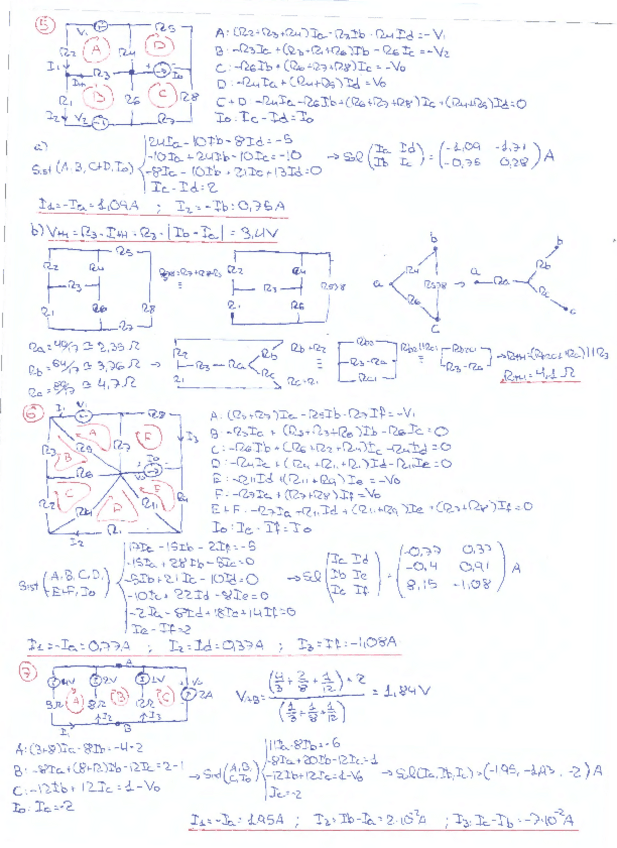 5
V1 R5
R2 A R4 D
I1 R3 I0
R1 B R6 C R8
I2 V2 R7
A: (R2+R3+R4)Ia-R3Ib-R4Id=-V1
B: -R3Ic+(R3+R1+R6)Ib-R6Ic=-V2
C: -R6Ib+(R6+R7+R8)Ic=-V0
D: -R4Ia+(R4+R5)Id=V0
C+D: -R4Ia-R6Ib+(R6+R7+R8)Ic+(R4+R5)Id=0
I0: Ic-Id=I0
a)
Sist (A,B,C+D,I0)
24Ia-10Ib-8Id=-5
-10Ia+24Ib-10Ic=-10
-8Ia-10Ib+21Ic+13Id=0
Ic-Id=2
→ Sol (Ia Id Ib Ic) = (-1,09 -1,71 -0,75 0,28) A
I1=-Ia=1,09A ; I2=-Ib=0,75A
b) VTH=R3·ITH=R3·|Ib-Ia|=3,4V
R5
R2 R4 R2 R4
R3 R3 R578
R1 R6 R8 R1 R6
R7
a b c R4 R6 R578 → a b c Ra Rb Rc
Rb=64/17≅3,76 Ω →
Rc=80/17≅4,7 Ω
R2 R3 Ra Rb Rc R1 ≡
6
A: (R5+R7)Ia-R5Ib-R7If=-V1
B: -R5Ia+(R3+R5+R6)Ib-R6Ic=0
C: -R6Ib+(R6+R2+R4)Ic-R4Id=0
D: -R4Ic+(R4+R11+R1)Id-R11Ie=0
E: -R11Id+(R11+R9)Ie=-V0
F: -R7Ia+(R7+R8)If=V0
E+F: -R7Ia-R11Id+(R11+R9)Ie+(R7+R8)If=0
I0: Ie-If=I0
Sist (A,B,C,D, E+F,I0)
17Ia-15Ib-2If=-5
-15Ia+28Ib-5Ic=0
-5Ib+21Ic-10Id=0
-10Ic+22Id-8Ie=0
-2Ia-8Id+18Ie+14If=0
Ie-If=2
→ Sol (Ia Id Ib Ie Ic If) = (-0,77 0,37 -0,4 0,91 8,15 -1,08) A
I1=-Ia=0,77A ; I2=Id=0,37A ; I3=If=-1,08A
7
A
4V 2V 1V
3Ω A 8Ω B 12Ω C 2A
I1 I2 I3
B
VAB = (4/3+2/8+1/12)+2 / (1/3+1/8+1/12) = 1,84V
A: (3+8)Ia-8Ib=-4-2
B: -8Ia+(8+12)Ib-12Ic=2-1
C: -12Ib+12Ic=1-V0
I0: Ic=-2
→ Sist (A,B, C,I0)
11Ia-8Ib=-6
-8Ia+20Ib-12Ic=1
-12Ib+12Ic=1-V0
Ic=-2
→ Sol(Ia,Ib,Ic)=(-1,95, -1,93, -2) A
I1=-Ia=1,95A ; I2=Ib-Ia=2·10⁻²A ; I3=Ic-Ib=-7·10⁻²A